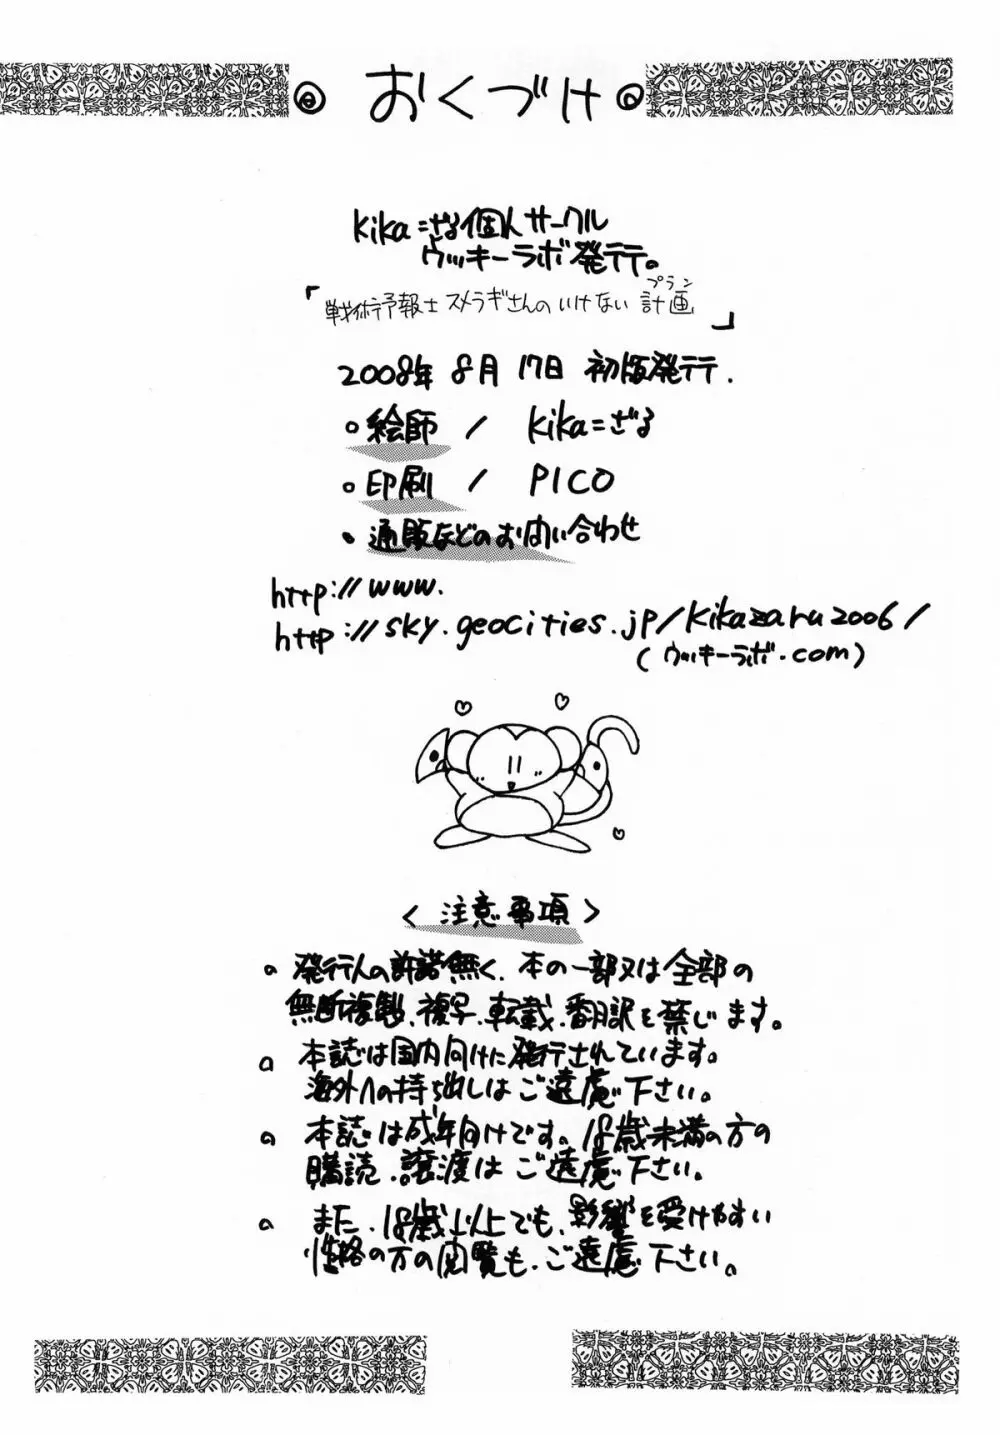 おくづけ
kika=ざる個人サークル
ウッキーラボ発行。
プラン
「戦術予報士スメラギさんのいけない計画」
2008年8月17日 初版発行.
○絵師 / kika=ざる
○印刷 / PICO
・通販などのお問い合わせ
http://www.
http://sky.geocities.jp/kikazaru2006/
(ウッキーラボ.com)
〈注意事項〉
○発行人の許諾無く、本の一部又は全部の
無断複製、複写、転載、翻訳を禁じます。
○本誌は国内向けに発行されています。
海外への持ち出しはご遠慮下さい。
○本誌は成年向けです。18歳未満の方の
購読、譲渡はご遠慮下さい。
○また、18歳以上でも、影響を受けやすい
性格の方の閲覧も、ご遠慮下さい。